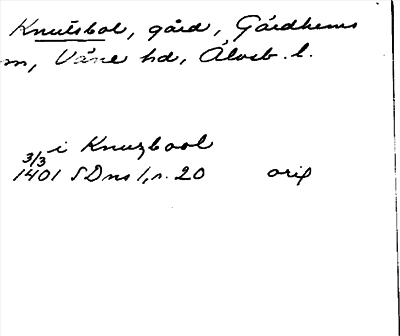 Knutsbol, gård, Gärdhems
n, Väne hd, Älvsb. l.
i Knuzbool
3/3
1401 SDns 1, s. 20 orig